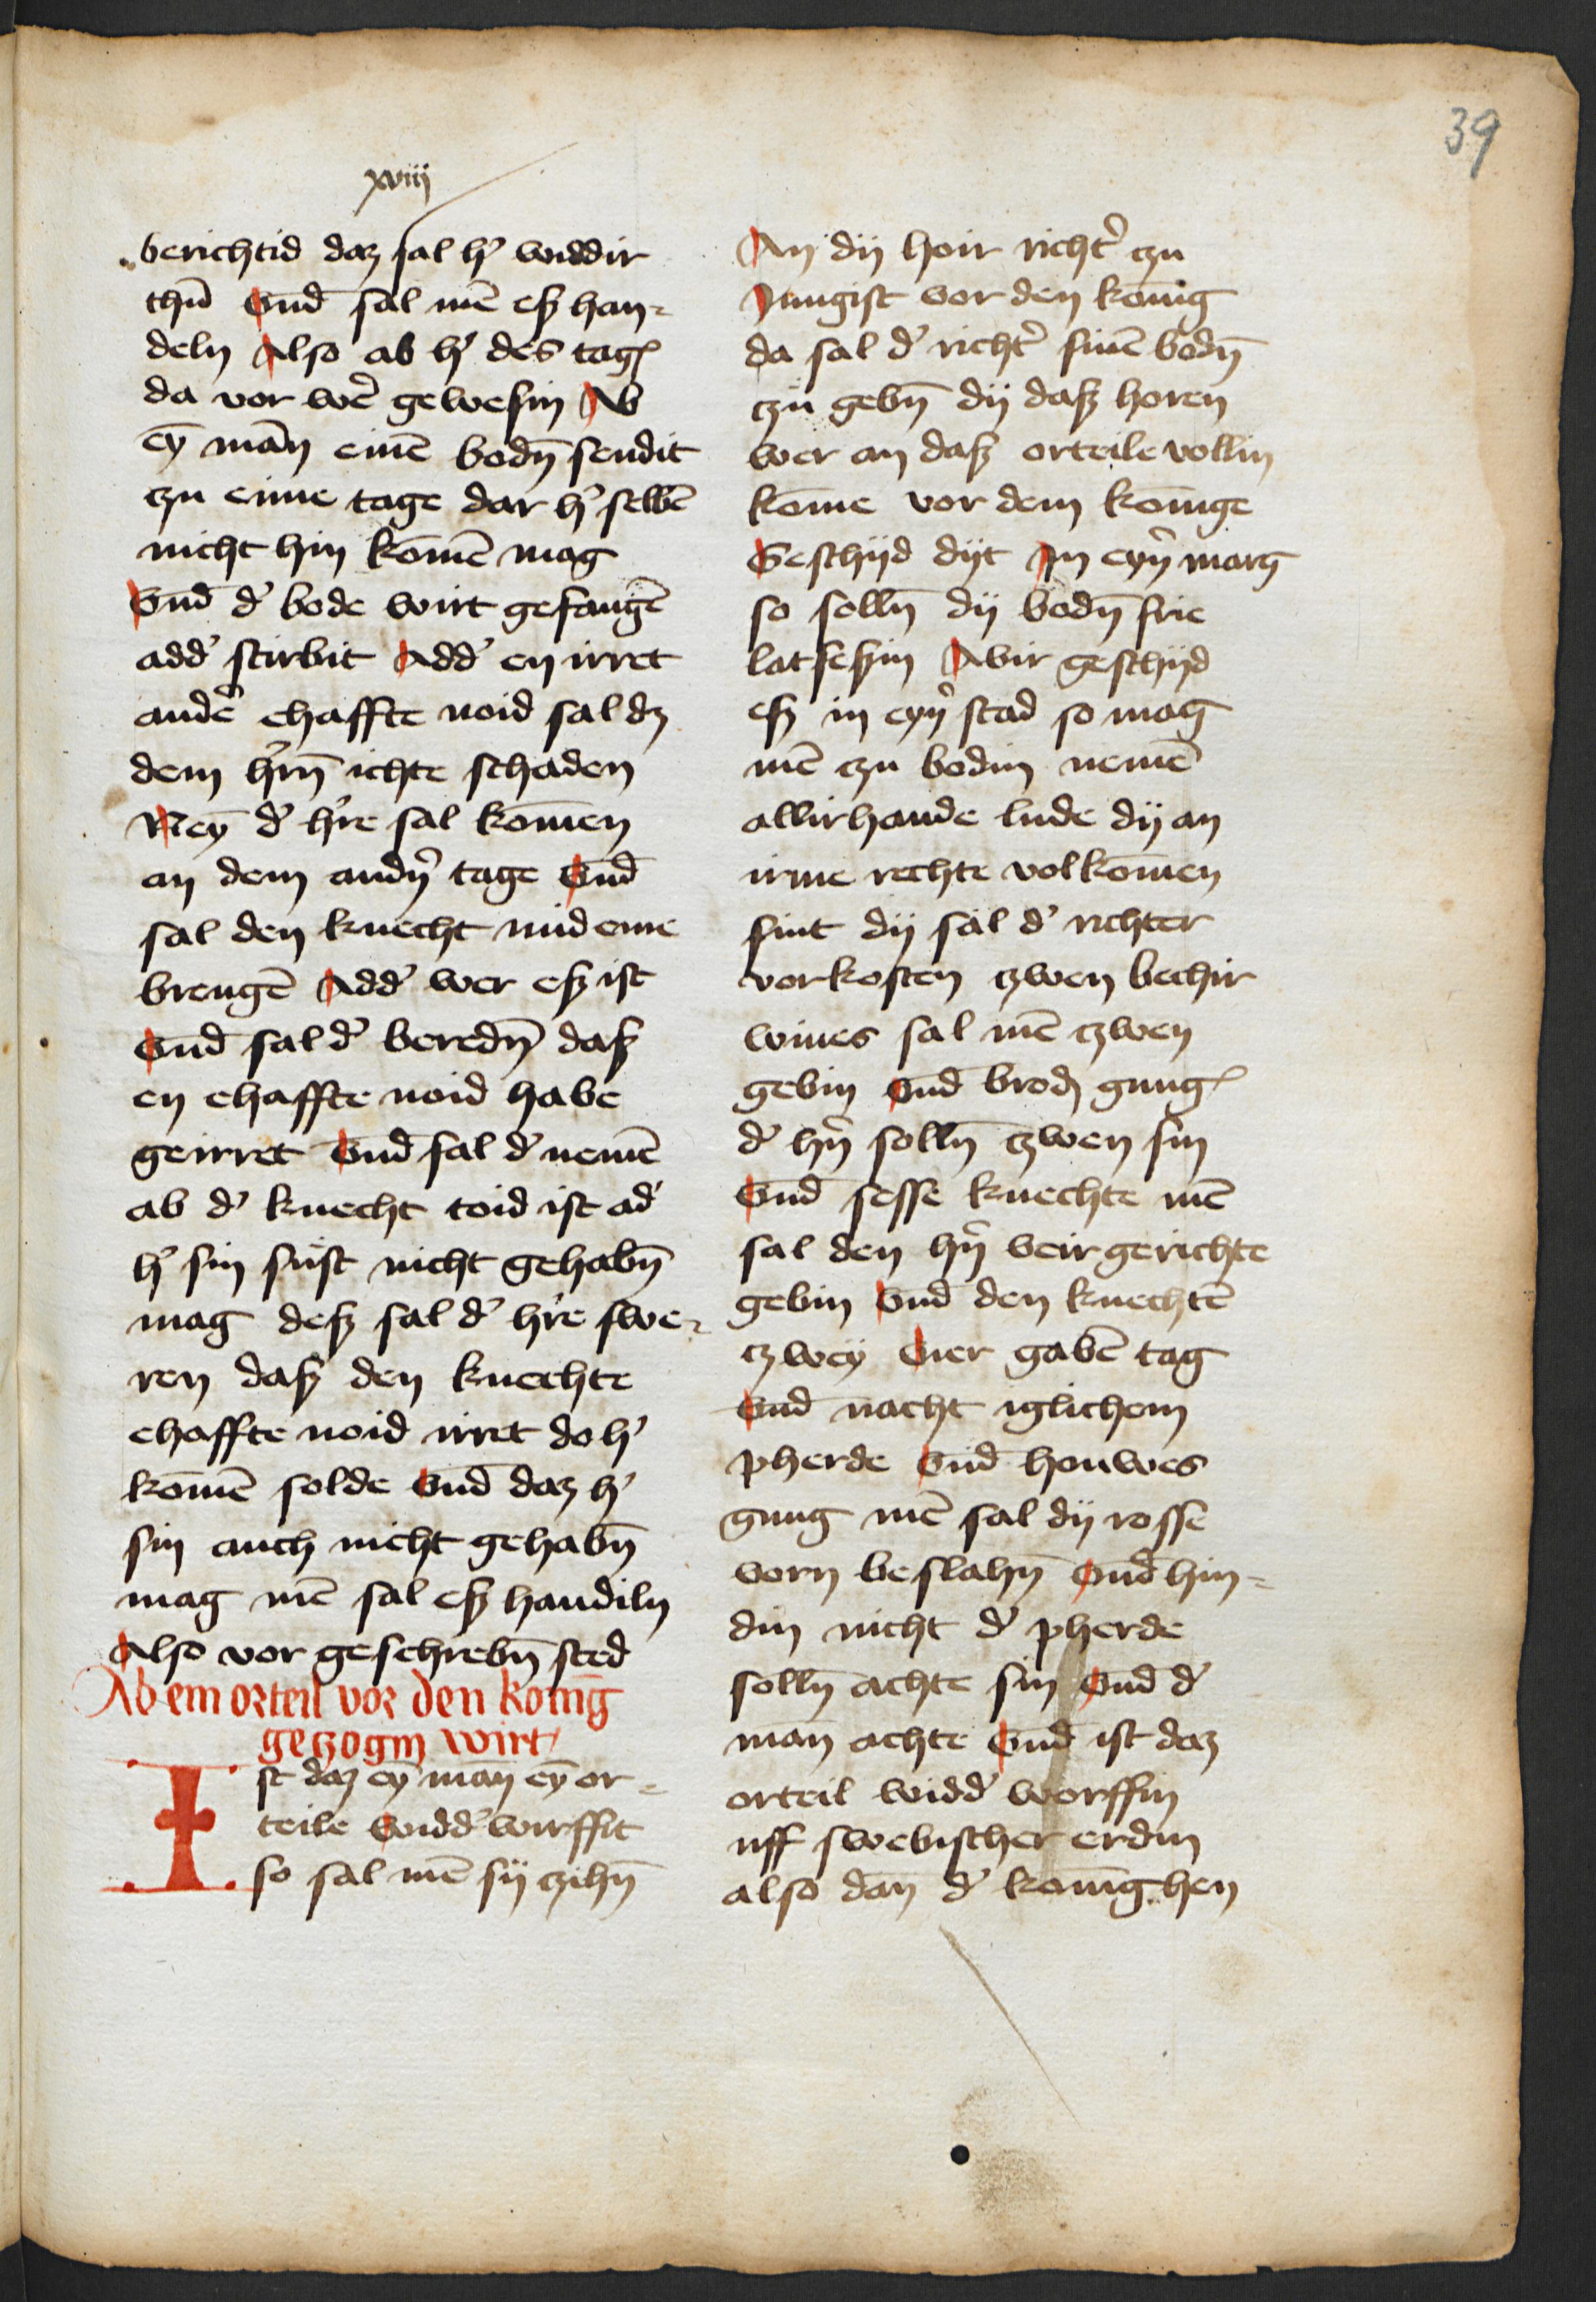 39
xviij
berichtid daz sal h' widdir
thū Vnd̄ sal mē eß han-
deln Also ab h' des tag
da vor wē gewesin Ab
eȳ mān einē bodn̄ sendit
zcu eime tage dar h' selbē
nicht hin kōmē mag
Vnd̄ d' bode wirt gefangē
add' stirbit Add' en irret
andē ehaffte noid sal dz
dem h'rn̄ ichte schaden
Neȳ d' h're sal kōmen
an dem andn' tage Vnd̄
sal den knecht mid eme
brengē Add' wer eß ist
Vnd̄ sal d' beredn̄ daß
en ehaffte noid habe
geirret Vnd̄ sal d' nemē
ab d' knecht toid ist ad'
h' sin sust nicht gehabn̄
mag deß sal d' h're swe-
ren daß den knechte
ehaffte noid irret do h'
kōmē solde Vnd̄ daz h'
sin auch nicht gehabn̄
mag mē sal eß handiln
Also vor geschrebn̄ sted
Ab ein orteil vor den konīg
geczogin wirt
Ist daz eȳ man eȳ or-
teile widd' wirffit
so sal mē sij czihn̄
An dij hoir richt' czu
Jungist vor den konīg
da sal d' richt' sinē bodn̄
czu gebn̄ dij daß horen
wer an daß orteile vollin
kōme vor dem konīge
Geschijd dijt Jn eyn' marg
so solln̄ dij bodn̄ frie
latseßin Abir geschijd
eß in eyn' stad so mag
mē czu bodin nemē
allirhande lude dij an
irme rechte volkōmen
sint dij sal d' richter
vorkosten czwen bechir
wines sal mē czwen
gebin Vnd̄ brod gnug
d' hn' solln̄ czwen sin
Vnd̄ sesse knechte mē
sal den hn' veir gerichte
gebin Vnd̄ den knechtē
czwey Vier gabē tag
Vnd̄ nacht iglichem
pherde Vnd̄ houwes
gnug mē sal dij rosse
vorn beslahn̄ Vnd̄ hin-
din nicht d' pherde
solln̄ achte sin Vnd̄ d'
man achte Vnd̄ ist daz
orteil widd' worffin
uff swebischer erdin
also dan̄ d' konīg hen